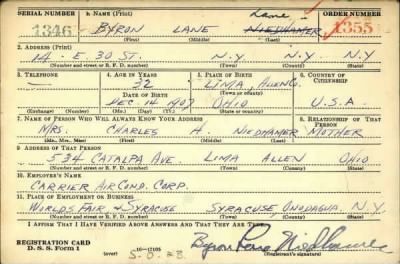 SERIAL NUMBER 1. NAME (Print) Lane ORDER NUMBER
1346 BYRON LANE NIEDHAMER 1355
(First) (Middle) (Last)
2. ADDRESS (Print)
14 E. 30 ST. N.Y. N.Y. N.Y.
(Number and street or R. F. D. number) (Town) (County) (State)
3. TELEPHONE 4. AGE IN YEARS 5. PLACE OF BIRTH 6. COUNTRY OF
CITIZENSHIP
32 LIMA, ALLEN CO.
DATE OF BIRTH (Town or county)
DEC. 14 1907 OHIO U.S.A.
(Exchange) (Number) (Mo.) (Day) (Yr.) (State or country)
7. NAME OF PERSON WHO WILL ALWAYS KNOW YOUR ADDRESS 8. RELATIONSHIP OF THAT
PERSON
MRS. CHARLES H. NIEDHAMER MOTHER
(Mr., Mrs., Miss) (First) (Middle) (Last)
9. ADDRESS OF THAT PERSON
534 CATALPA AVE. LIMA ALLEN OHIO
(Number and street or R. F. D. number) (Town) (County) (State)
10. EMPLOYER'S NAME
CARRIER AIR COND. CORP.
11. PLACE OF EMPLOYMENT OR BUSINESS
WORLDS FAIR & SYRACUSE SYRACUSE, ONODAGUA, N.Y.
(Number and street or R. F. D. number) (Town) (County) (State)
I AFFIRM THAT I HAVE VERIFIED ABOVE ANSWERS AND THAT THEY ARE TRUE.
REGISTRATION CARD
D. S. S. Form 1 (over) 16—17105 Byron Lane Niedhamer
(Registrant's signature)